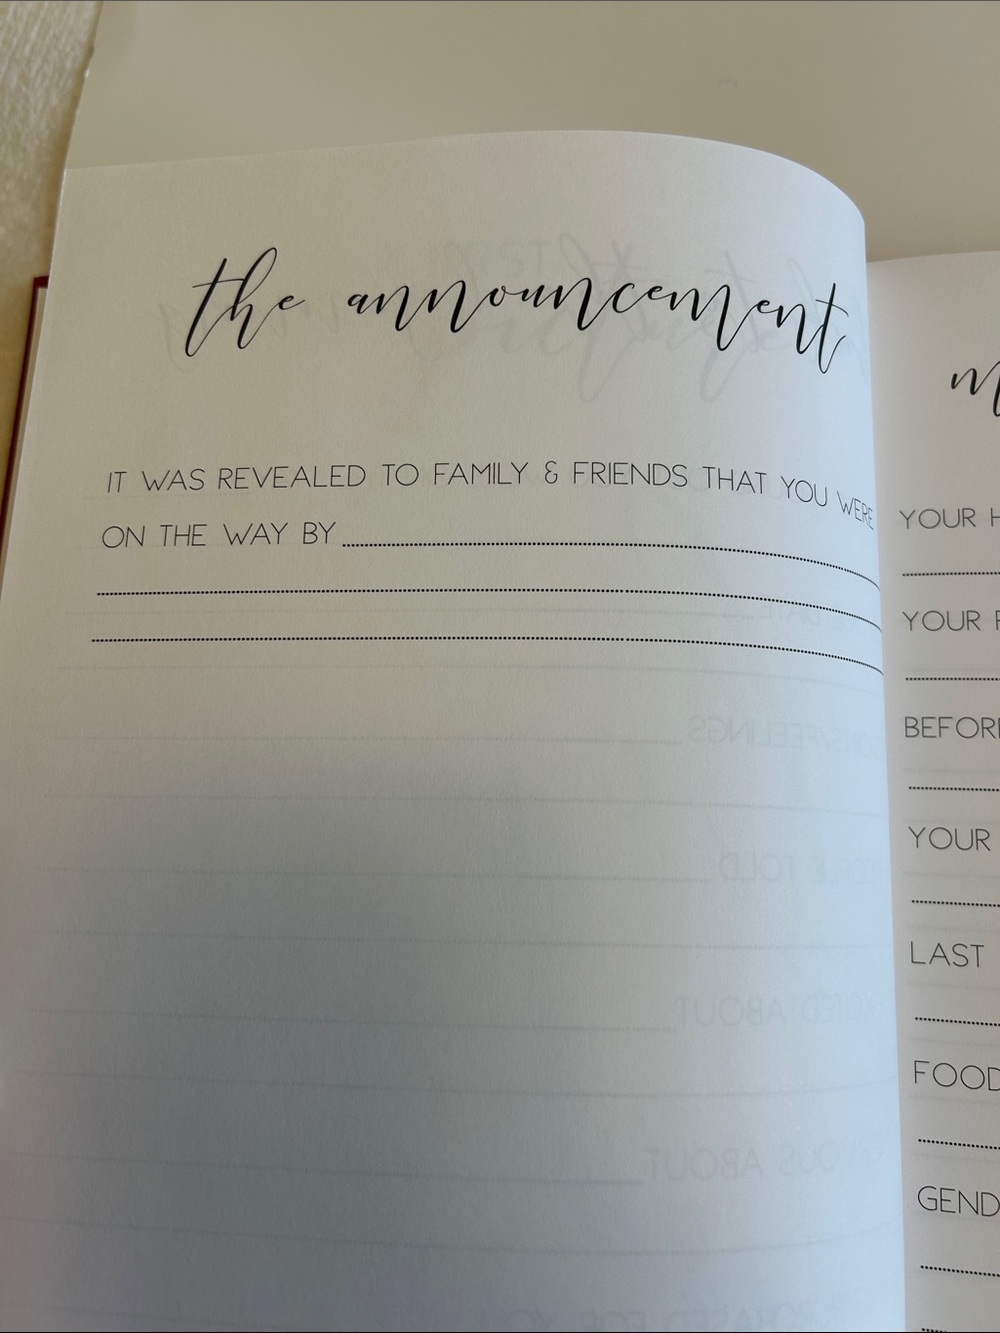 the announcement
IT WAS REVEALED TO FAMILY & FRIENDS THAT YOU WERE
ON THE WAY BY
YOUR
YOUR
YOUR
LAST
FOOD